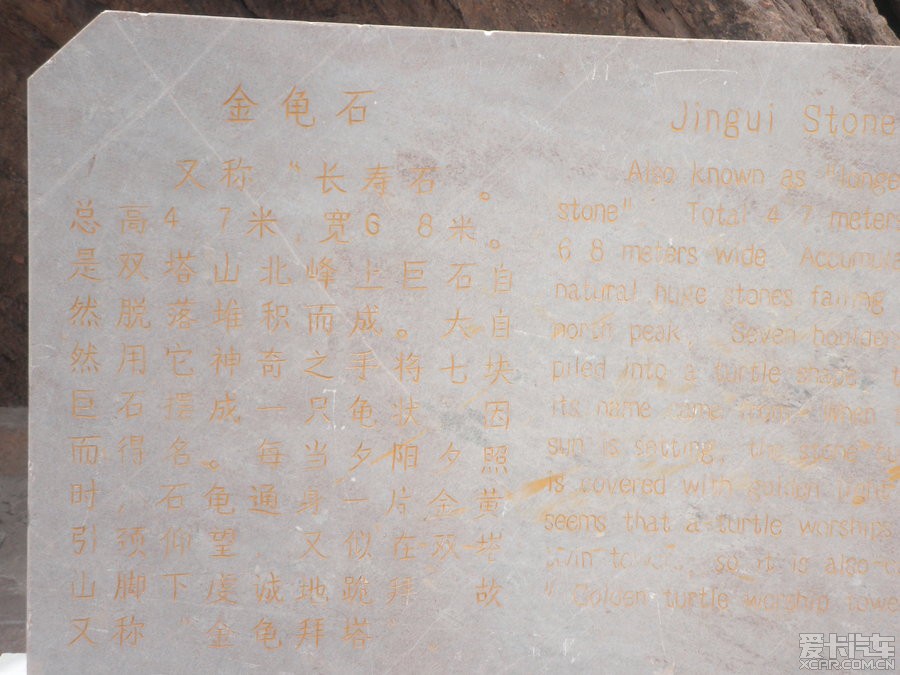 金龟石
又称“长寿石。
总高4 7米,宽6 8米。
是双塔山北峰上巨石自
然脱落堆积而成。大自
然用它神奇之手将七块
巨石摆成一只龟状 因
而得名。每当夕阳夕照
时,石龟通身一片金黄
引颈仰望 又似在双塔
山脚下虔诚地跪拜 故
又称“金龟拜塔”
Jingui Stone
Also known as "longe
stone" Total 4 7 meters
6 8 meters wide Accumula
natural huge stones falling
north peak, Seven boulders
piled into a turtle shape
its name came from When
sun is setting, the stone
is covered with golden light
seems that a turtle worships
so it is also
"Golden turtle worship towe
爱卡汽车
XCAR.COM.CN